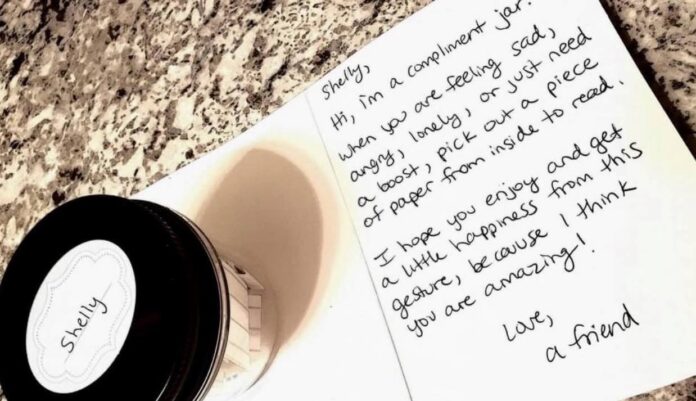 Shelly
Shelly,
Hi, I'm a compliment jar!
When you are feeling sad,
angry, lonely, or just need
a boost, pick out a piece
of paper from inside to read.
I hope you enjoy and get
a little happiness from this
gesture, because I think
you are amazing!
Love,
a friend